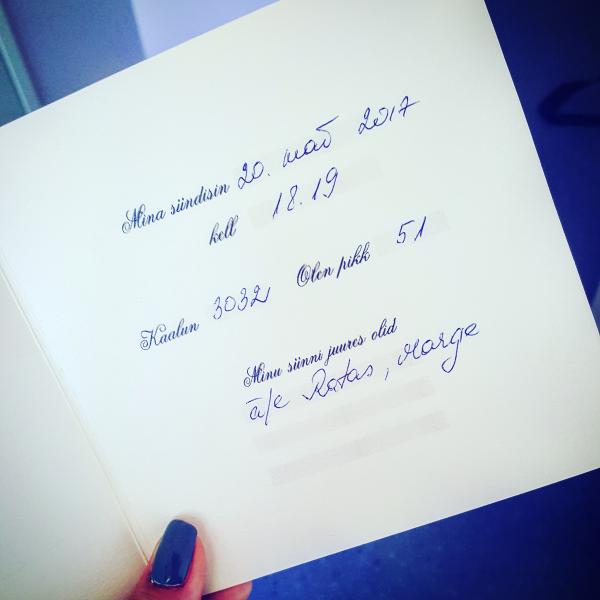 Mina sündisin 20. mai 2017
kell 18.19
Kaalun 3032 Olen pikk 51
Minu sünni juures olid
ä/e Ratas, Marge